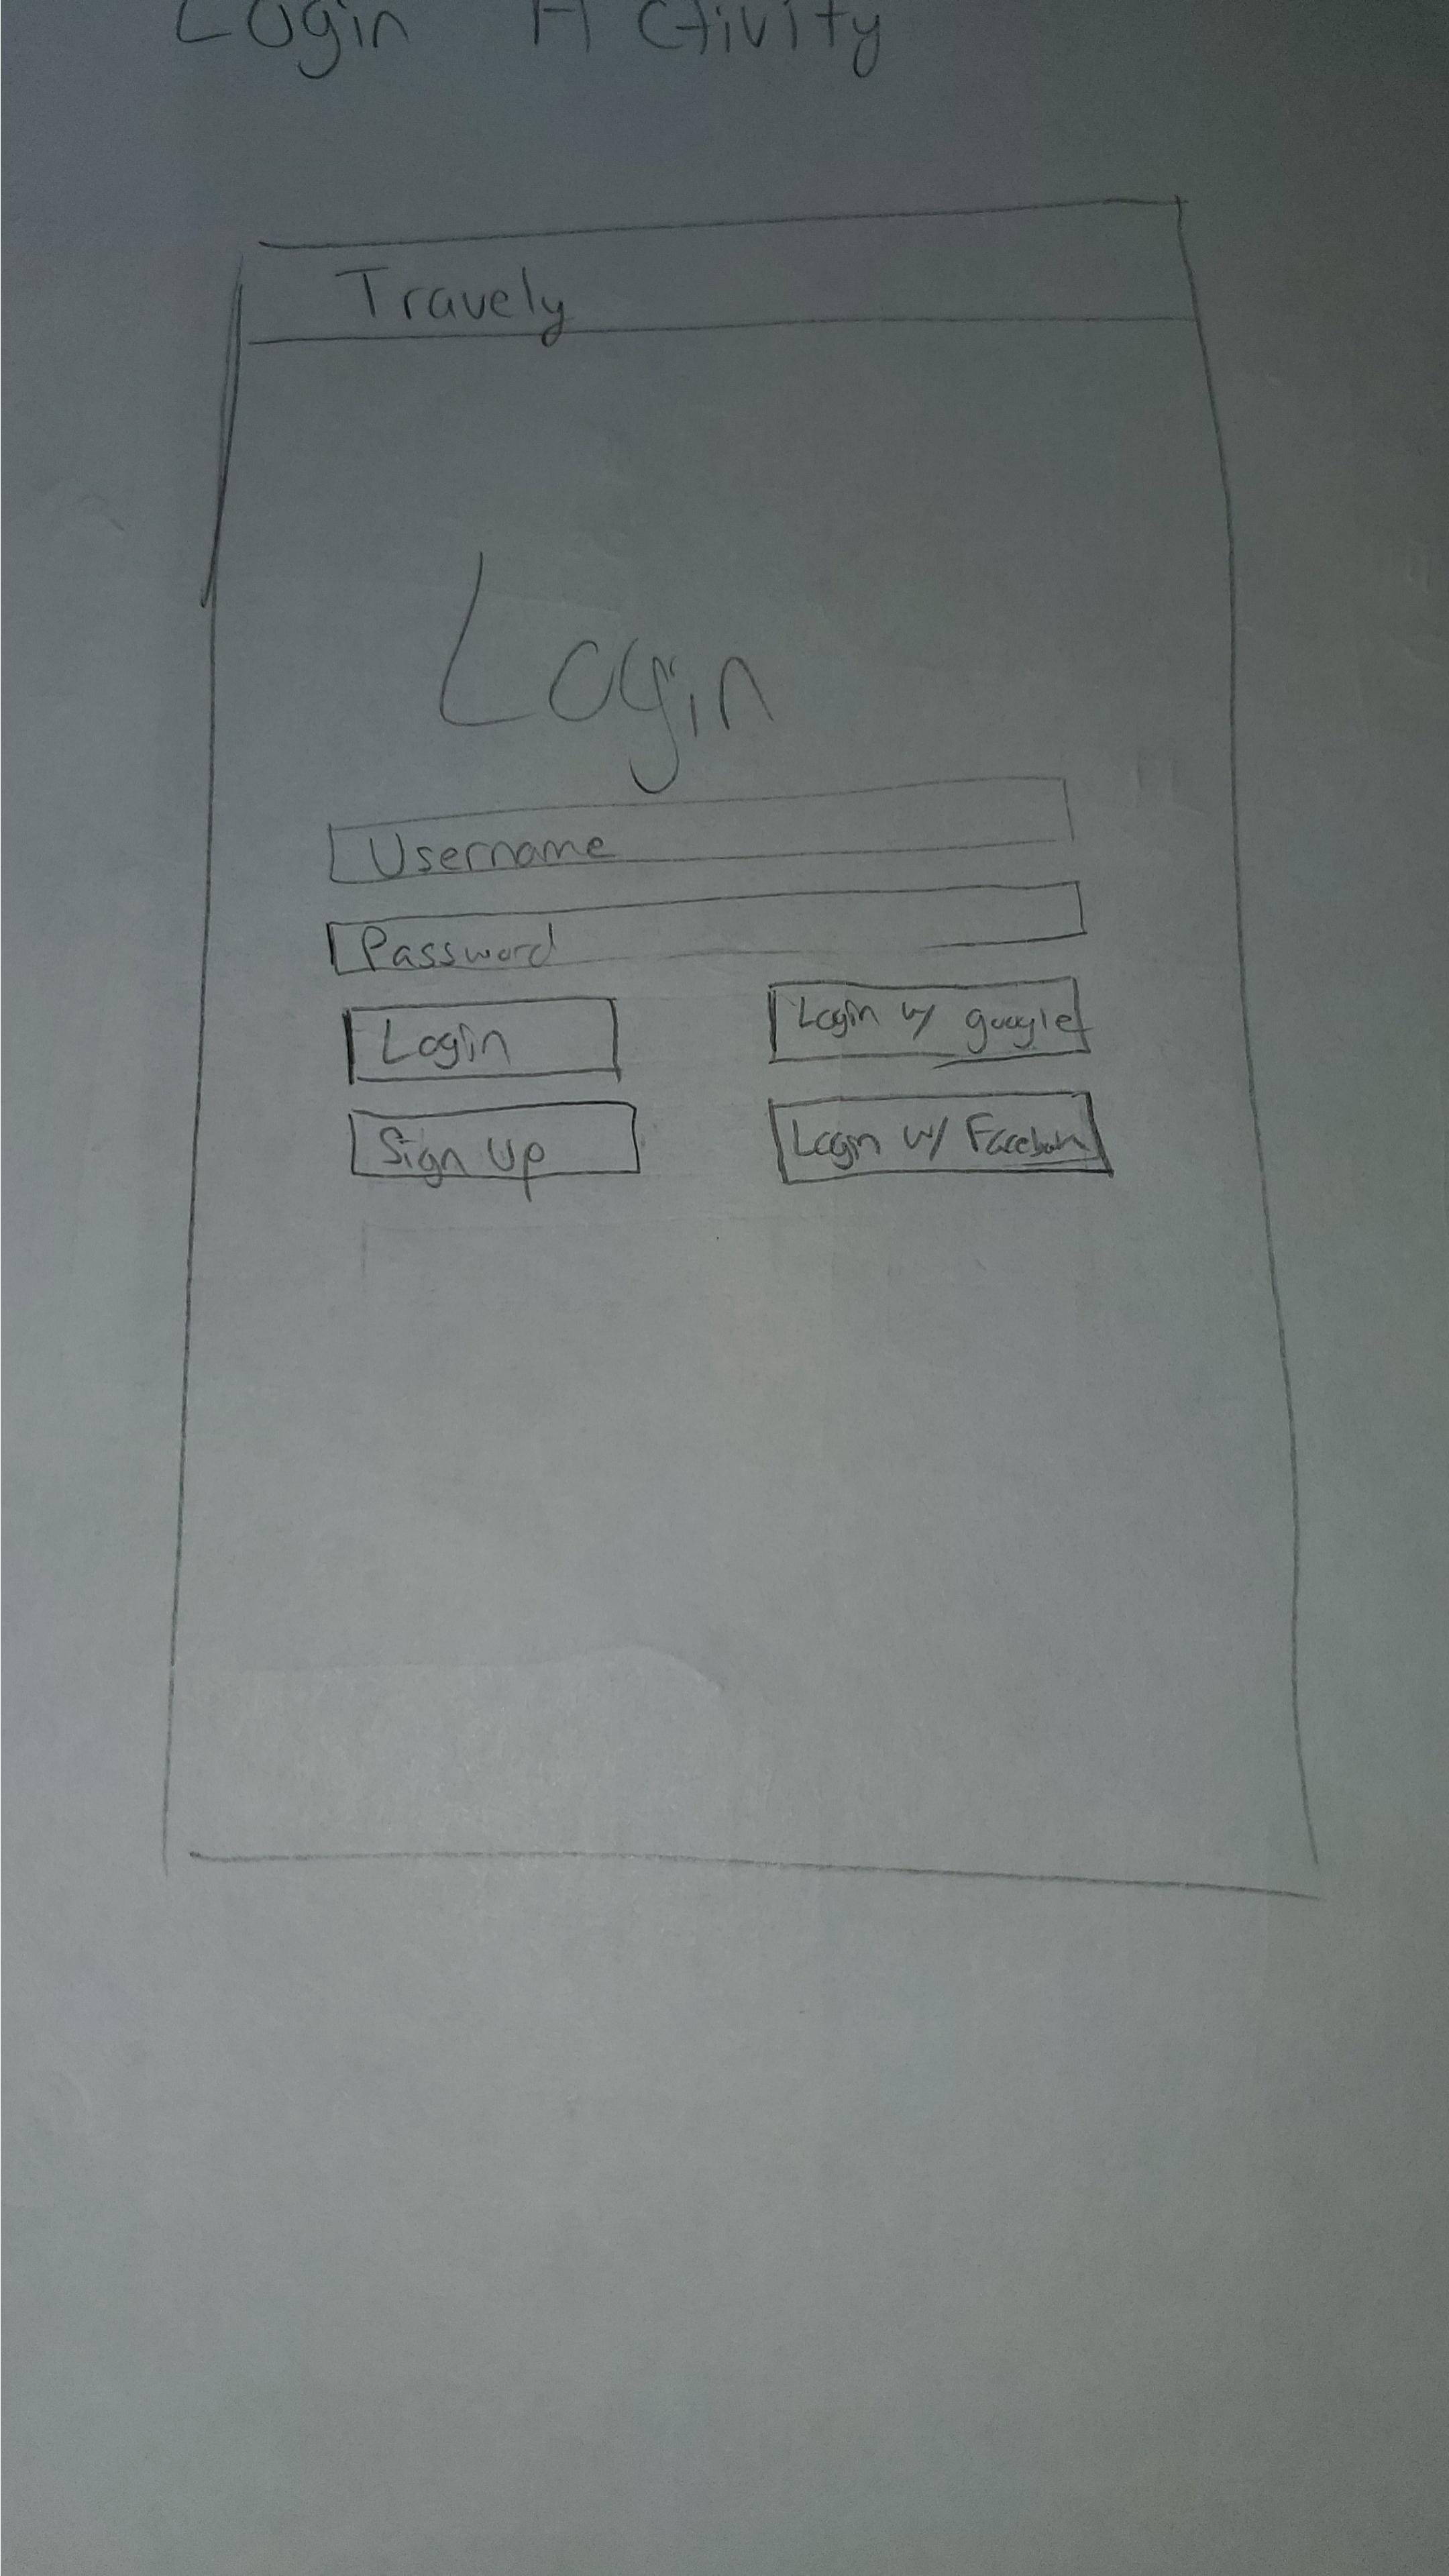 Login Activity
Travely
Login
Username
Password
Login
Login w/ google
Sign Up
Login w/ Facebook